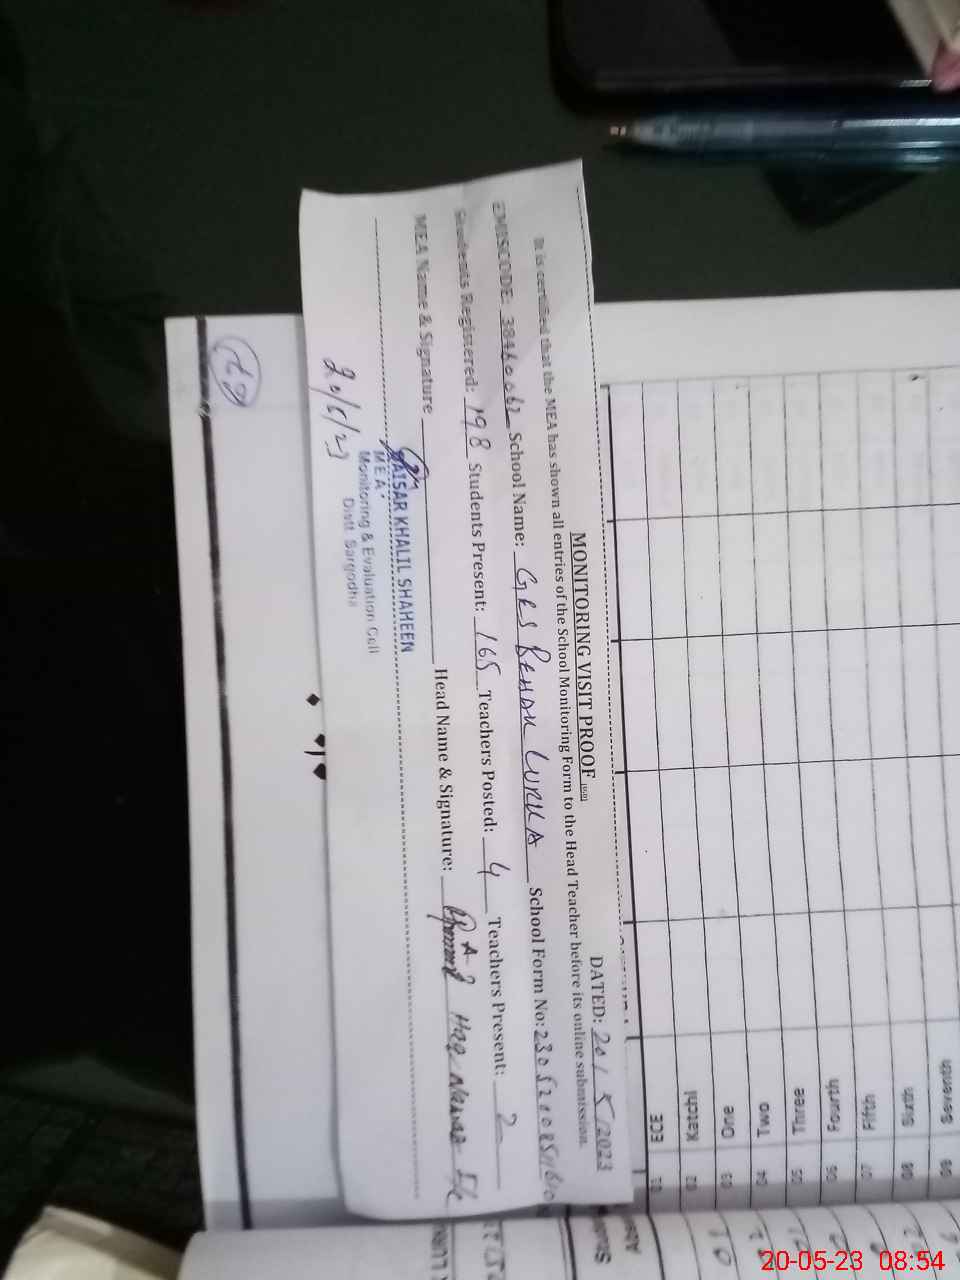 MONITORING VISIT PROOF
DATED: 20/5/2023
It is certified that the MEA has shown all entries of the School Monitoring Form to the Head Teacher before its online submission.
EMISCODE: 38460062 School Name: School Form No:
Students Registered: 198 Students Present: 165 Teachers Posted: 4 Teachers Present: 2
MEA Name & Signature Head Name & Signature:
QAISAR KHALIL SHAHEEN
MEA
Monitoring & Evaluation Cell
Distt Sargodha
20/5/23
01 ECE
02 Katchi
03 One
04 Two
05 Three
06 Fourth
07 Fifth
08 Sixth
09 Seventh
20-05-23 08:54